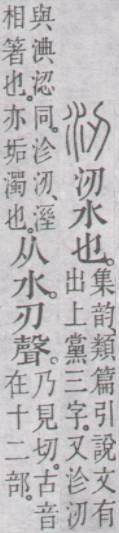 㲽水也。
集韵、類篇引說文有
出上黨三字。又沴㲽
與淟涊同。沴㲽、溼
相箸也。亦垢濁也。
从水。刃聲。
乃見切。古音
在十二部。